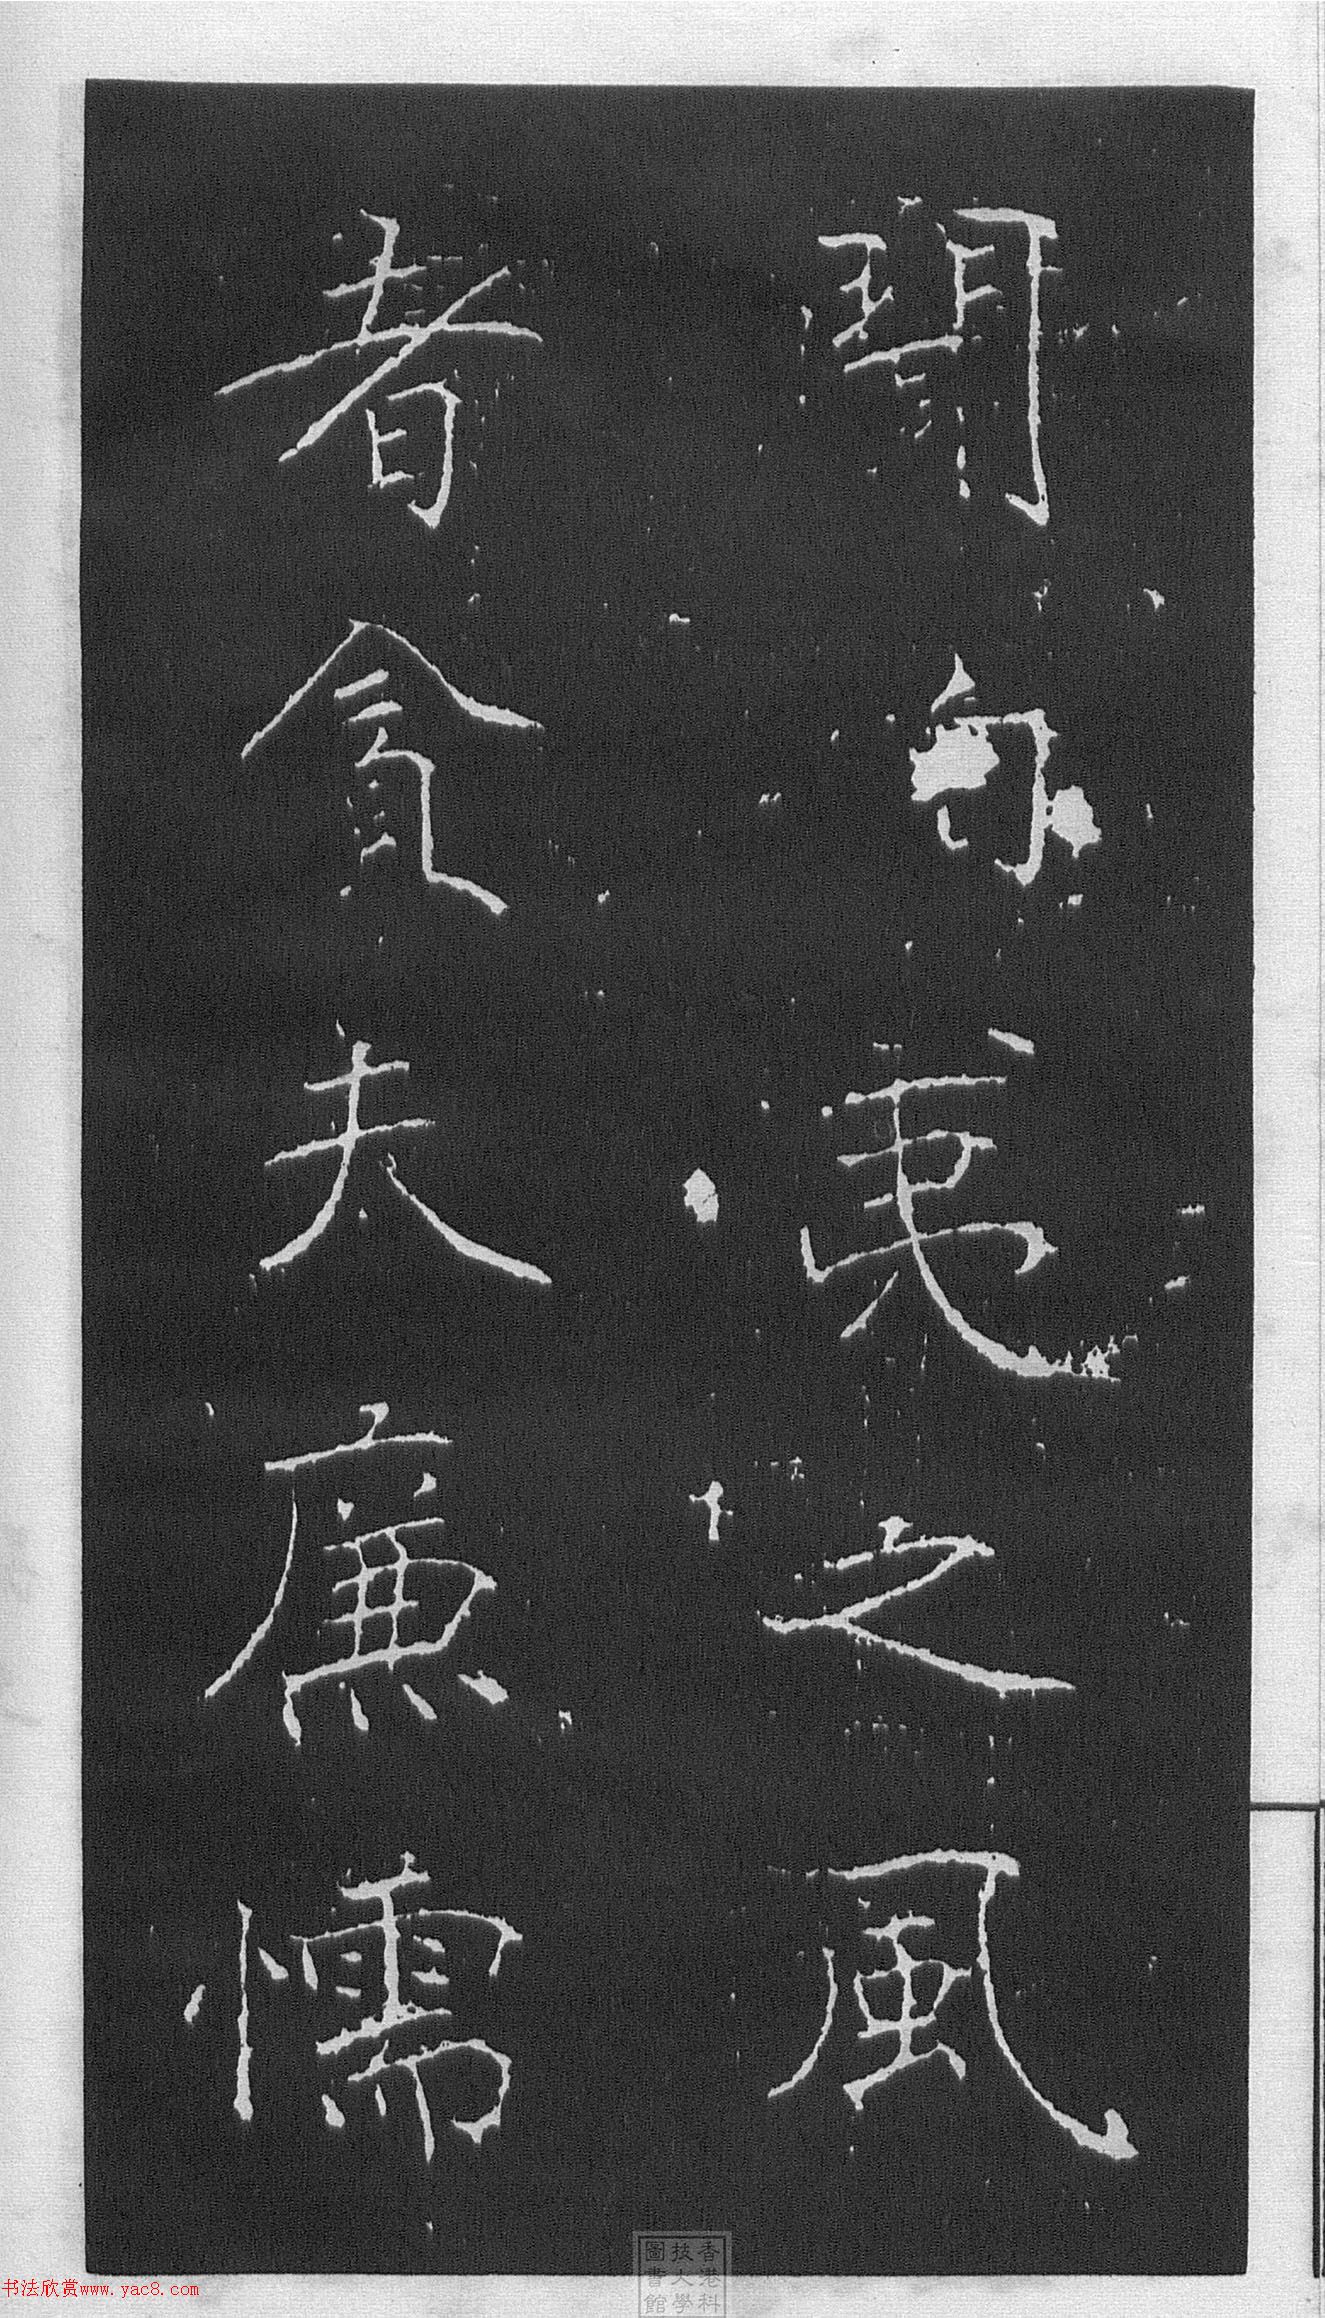 聞伯夷之風
者貪夫廉懦
香港科
技大學
圖書館
书法欣赏www.yac8.com